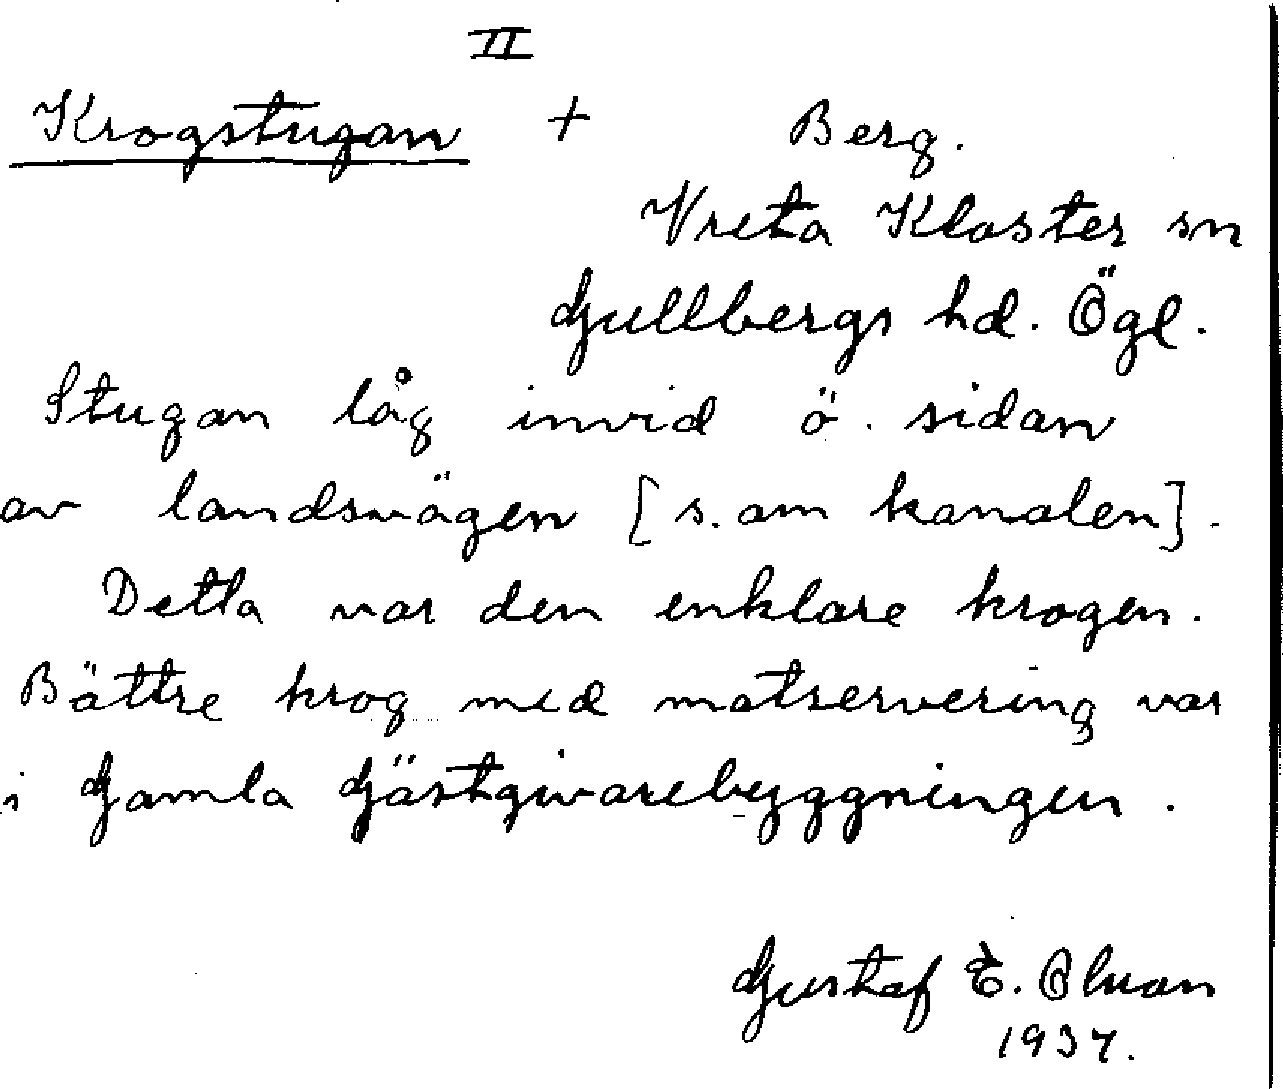 II
Krogstugan + Berg.
Vreta Kloster sn
Gullbergs hd. Ögl.
Stugan låg invid ö. sidan
av landsvägen [s. om kanalen].
Detta var den enklare krogen.
Bättre krog med matservering var
i Gamla Gästgivarebyggningen.
Gustaf E.
1937.